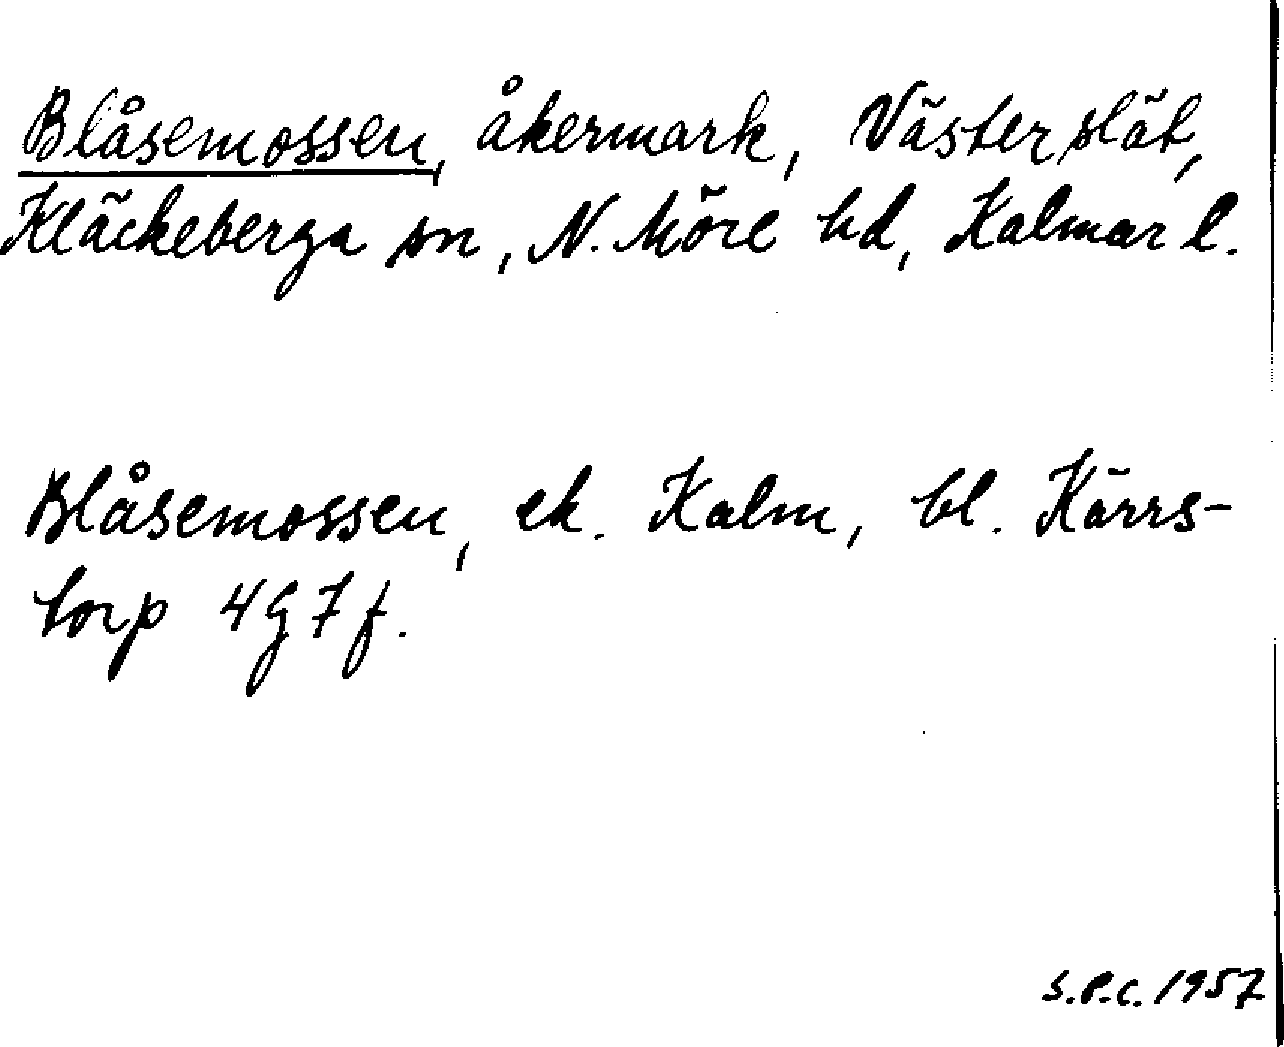 Blåsemossen, åkermark, Västerslät,
Kläckeberga sn, N. Möre hd, Kalmar l.
Blåsemossen, ek. Kalm, bl. Kärrs-
torp 4G7f.
S.P.C. 1957